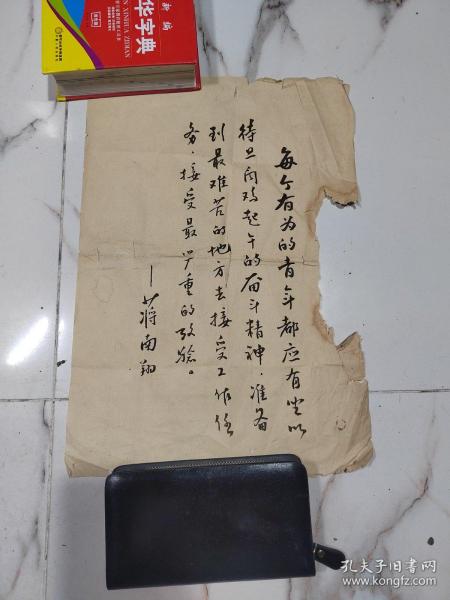 新编
华字典
XINHUA ZIDIAN
每个有为的青年都应有坐以
待旦闻鸡起午的奋斗精神，准备
到最难苦的地方去接受工作任
务，接受最严重的攷验。
—蒋南翔
孔夫子旧书网
www.kongfz.com